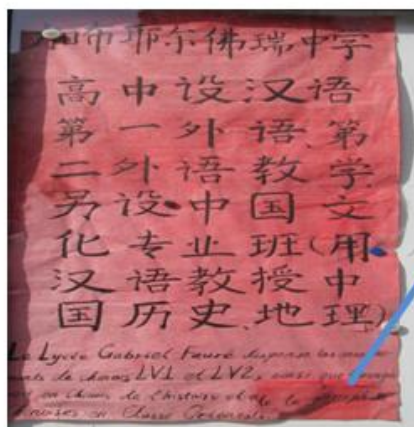 加布耶尔佛瑞中学
高中设汉语
第一外语、第
二外语教学.
另设中国文
化专业班(用
汉语教授中
国历史、地理)
Le Lycée Gabriel Fauré dispense les
ments de chinois LV1 et LV2, ainsi que
en chinois de l'histoire et de la géographie
chinoises en Classe Orientale.